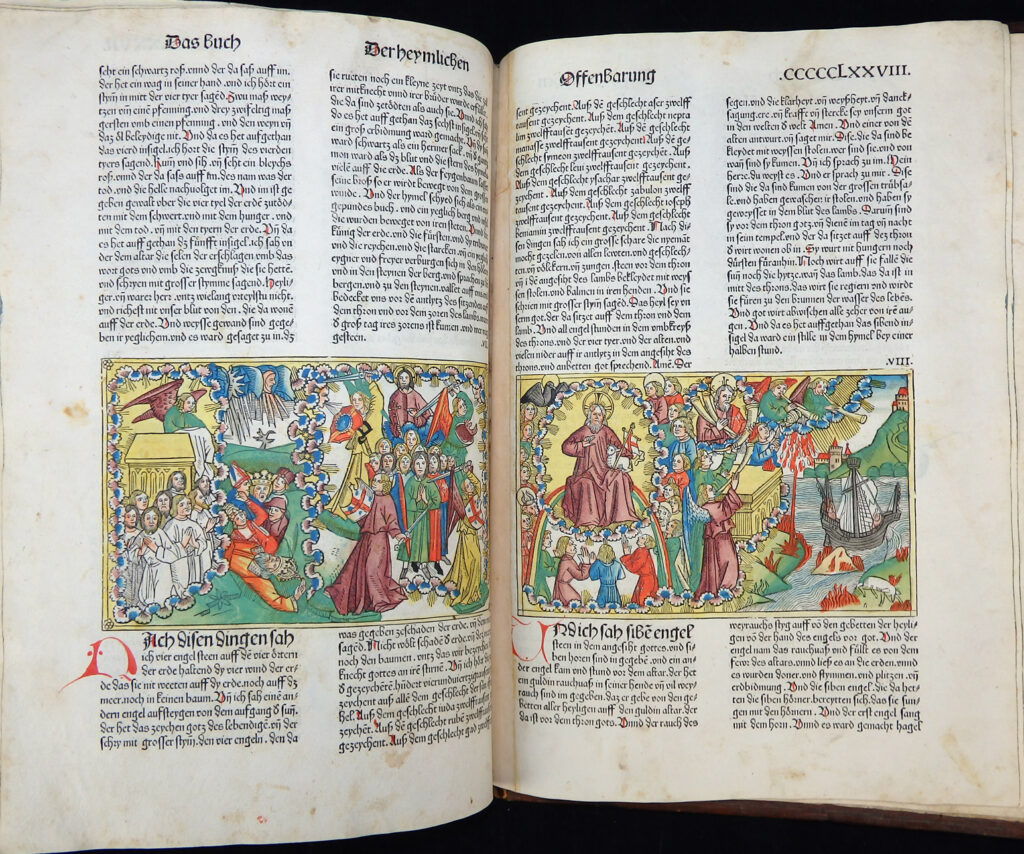 Das Buch
seht ein schwartz roß. vnnd der da saß auff im.
der het ein wag in seiner hand. vnd ich hört ein
stym̄ in mitt der vier tyer sagēd. Zwu maß wey-
tzen vmb einē pfenning. vnd drey zwifeling maß
gersten vmb einen pfenning. vnd den weyn vn̄
daz öl beleydige nit. Vnd da es het aufgethan
das vierd insigel. ich hort die stym̄ des vierden
tyers sagend. Kum̄ vnd sih. vn̄ seht ein bleychs
roß. vnnd der da saß auff im. des nam was der
tod. vnd die helle nachuolget im. Vnd im ist ge
geben gewalt vber die vier tyel der erde zutöd-
ten mit dem schwert. vnd mit dem hunger. vnd
mit dem tod. vn̄ mit den tyern der erde. Vn̄ da
es het auff gethan dz fünfft insigel. ich sah vn
der dem altar die selen der erschlagen vmb das
wort gots vnd vmb die zeugknuß die sie hettē.
vnd schryen mit grosser stymme sagend. Heyli-
ger. vn̄ warer herr. vntz wielang vrteylstu nicht.
vnd richest nit vnser blut von den. die da wonē
auff der erde. Vnd weysse gewand sind gege-
ben ir yeglichem. vnd es ward gesaget zu in. dz
Der heymlichen
sie rueten noch ein kleyne zeyt vntz das die zal
irer mitknecht vnnd irer brüder wurd erfüllet.
die da sind zetödten als auch sie. Vnd
do es het auff gethan daz sechst insigel.
ein groß erbidmung ward gemacht. Vn̄
ward schwartz als ein heriner sack. vn̄ d gantz
mon ward als dz blut vnd die stern des hymels
vielē auff die erde. Als der feygenbaum lasset
seine broß so er wirdt bewegt von dem grossen
winde. Vnd der hymel schyed sich als ein
gepundens buch. vnd ein yeglich berg vnd
die wurden beweget von iren steten. Vnd die
künig der erde. vnd die fürsten. vnd
vnd die reychen. vnd die starcken. vn̄ ein yeglich
eygner vnd freyer verburgen sich in den hölen
vnd in den steynen der berg. vnd sprachen zu
bergen. vnd zu den steynen. vallet auff vns
bedecket vns vor dē antlytz des sitzenden auff
dem thron vnd vor dem zoren des lambs. wann
d̄ groß tag ires zorens ist kumen. vnd wer
gesteen.
Nach disen dingen sah
ich vier engel steen auff dē vier örtern
der erde haltend dy vier wind der er-
de das sie nit weeten auff dy erde. noch auff dz
meer. noch in keinen baum. Vn̄ ich sah einē an-
dern engel aufsteygen von dem aufgang d̄ sun̄.
der het das zeychen gotz des lebendigē. vn̄ der
schry mit grosser stym̄. den vier engeln. den da
was gegeben zeschaden der erde. vn̄ dem
sagēd. Nicht wölt schadē d̄ erde. vn̄ dem
noch den baumen. vntz das wir bezeychen
knecht gottes an irē stirnē. Vn̄ ich hort die
d̄ gezeychētē. hūdert vierundvierzig tausent
gezeychent auß allē dem geschlecht der sün
hel. Auß dem geschlecht iuda zwelff tausent
zeychēt. Auß dē geschlecht rubē zwelff tausent
gezeychent. Auß dem geschlecht gad zwelff
Offenbarung
.CCCCCLXXVIII.
sent gezeychent. Auß dē geschlecht aser zwelff
tausent gezeychent. Auß dē geschlecht nepta
lim zwelfftausent gezeychēt. Auß dē geschlecht
manasse zwelfftausent gezeychent. Auß dē ge-
schlecht symeon zwelfftausent gezeychent. Auß
dem geschlecht leui zwelfftausent gezeychent.
Auß dem geschlecht ysachar zwelfftausent ge-
zeychent. Auß dem geschlecht zabulon zwelff
tausent gezeychent. Auß dem geschlecht ioseph
zwelfftausent gezeychent. Auß dem geschlecht
beniamin zwelfftausent gezeychent. Nach di-
sen dingen sah ich ein grosse schare die nyemāt
mocht gezelen. von allen lewten. vnd geschlech-
ten. vn̄ völckern. vn̄ zungen. steen vor dem thron
vn̄ i dē angesiht des lambs bekleydet mit weys
sen stolen. vnd balmen in iren henden. Vnd sie
schrien mit grosser stym̄ sagēd. Das heyl sey vn
serm got. der da sitzet auff dem thron vnd dem
lamb. Vnd all engel stunden in dem vmbkreyß
des throns. vnd der vier tyer. vnd der alten. vnd
vielen nider auff ir antlytz in dem angesiht des
throns. vnd anbetten got sprechend. Amē. Der
segen. vnd die klarheyt. vn̄ weyßheyt. vn̄ danck-
sagung. ere. vn̄ krafft vn̄ stercke sey vnserm got
in den welten d̄ welt Amen. Vnd einer von dē
alten antwurt. vn̄ saget mir. Dise. die da sind be
kleydet mit weyssen stolen. wer sind sie. vnd von
wan̄ sind sy kumen. Vn̄ ich sprach zu im. Mein
herr. du weyst es. Vnd er sprach zu mir. Dise
sind die da sind kumen von der grossen trübsa-
le. vnd haben gewaschen ir stolen. vnd haben sy
geweysset in dem blut des lambs. Darumb sind
sy vor dem thron gotz. vn̄ dienē im tag vn̄ nacht
in seim tempel. vnd der da sitzet auff dez thron
d̄ wirt wonen ob in. Sy wirt nit hungern noch
dürsten fürānhin. Noch wirt auff sie fallē die
sun̄ noch die hytze. wan̄ das lamb. das da ist in
mitt des throns. das wirt sie regiern vnd wirdt
sie füren zu den brunnen der wasser des lebēs.
Vnd got wirt abwischen alle zeher von irē au-
gen. Vnd da es het auffgethan das sibend in-
sigel da ward ein stille in dem hymel bey einer
halben stund.
.VIII.
Vnd ich sah sibē engel
steen in dem angesiht gottes. vnd si-
ben horen sind in gegebē. vnd ein an-
der engel kam vnd stund vor dem altar. der het
ein guldin rauchuaß in seiner hende vn̄ vil wey-
rauch sind im gegebē. daz er gebe von den ge-
betten aller heyligen auff den guldin altar. der
da ist vor dem thron gots. Vnnd der rauch des
weyrauchs styg auff vō den gebetten der heyli-
gen vō der hand des engels vor got. Vnd der
engel nam das rauchuaß vnd füllet es von dem
fewr des altars. vnnd ließ es an die erden. vnnd
es wurden doner. vnd stymmen. vnd plitzen. vn̄
erdbidmung. Vnd die siben engel. die da het-
ten die siben hörner. bereytten sich. das sie sun-
gen mit den hörnern. Vnd der erst engel sang
mit dem horn. Vnnd es ward gemacht hagel